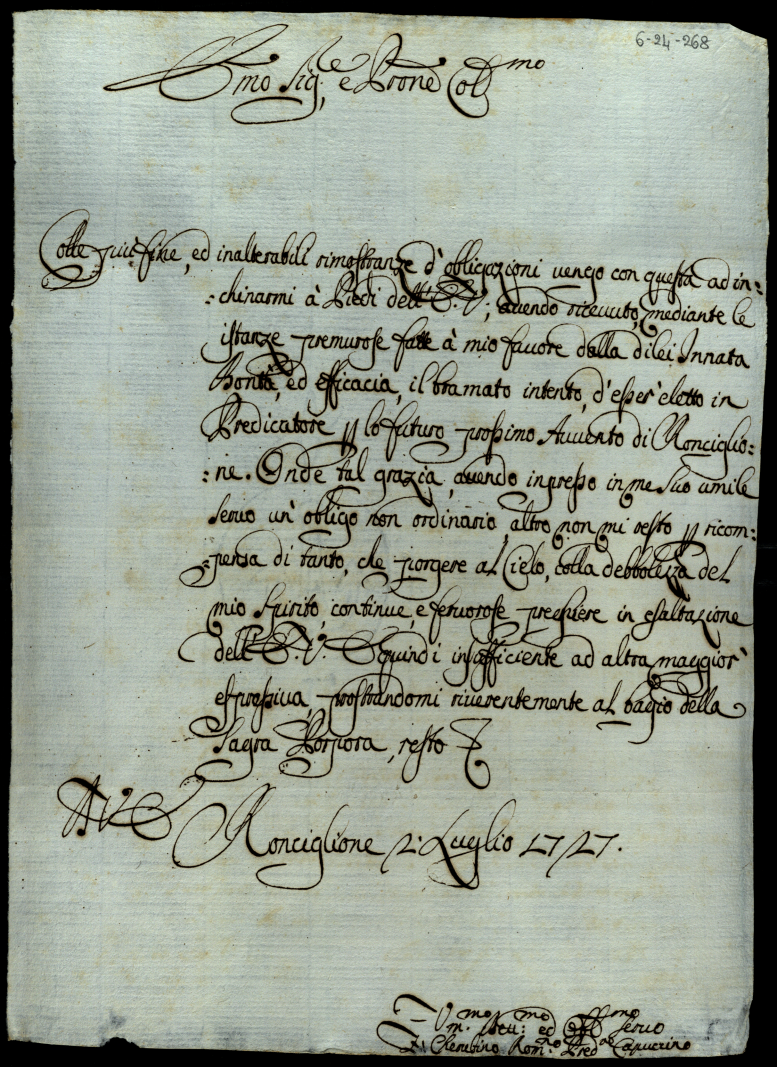 6-24-268
Emo Sig.re e Prone Colmo
Colle più fine, ed inalterabili rimostranze d'obligazioni vengo con questa ad in=
=chinarmi à Piedi dell'E. V., avendo ricevuto, mediante le
istanze premurose fatte à mio favore dalla dilei Innata
Bontà, ed efficacia, il bramato intento, d'esser'eletto in
Predicatore p lo futuro prossimo Avvento di Ronciglio=
=ne. Onde tal grazia, avendo inpresso in me suo umile
servo un'obligo non ordinario, altro non mi resto p ricom=
=pensa di tanto, che porgere al Cielo, colla debbolezza del
mio Spirito, continue, e fervorose preghiere in esaltazione
dell'E. V. E quindi insofficiente ad altra maggior'
espressiva, prostrandomi riverentemente al bagio della
Sagra Porpora, resto
A V E
Ronciglione 2: Luglio 1727.
Vmo ed Oblmo servo
F. Cherubino Romno Predre Capuccino